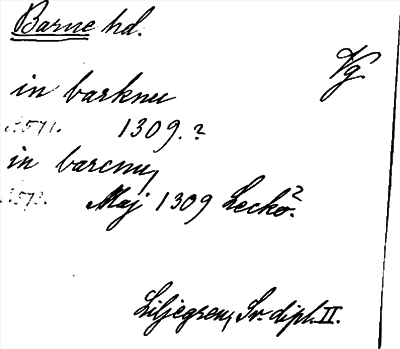 Barne hd.
Vg.
in barknu
s. 571. 1309.?
in barcnu,
Maj 1309 Leckö?
Liljegren, Sv. dipl. II.